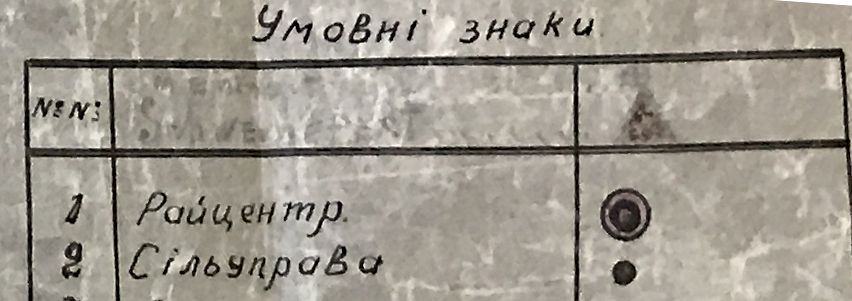 Умовні знаки
№№
1 Райцентр.
2 Сільуправа